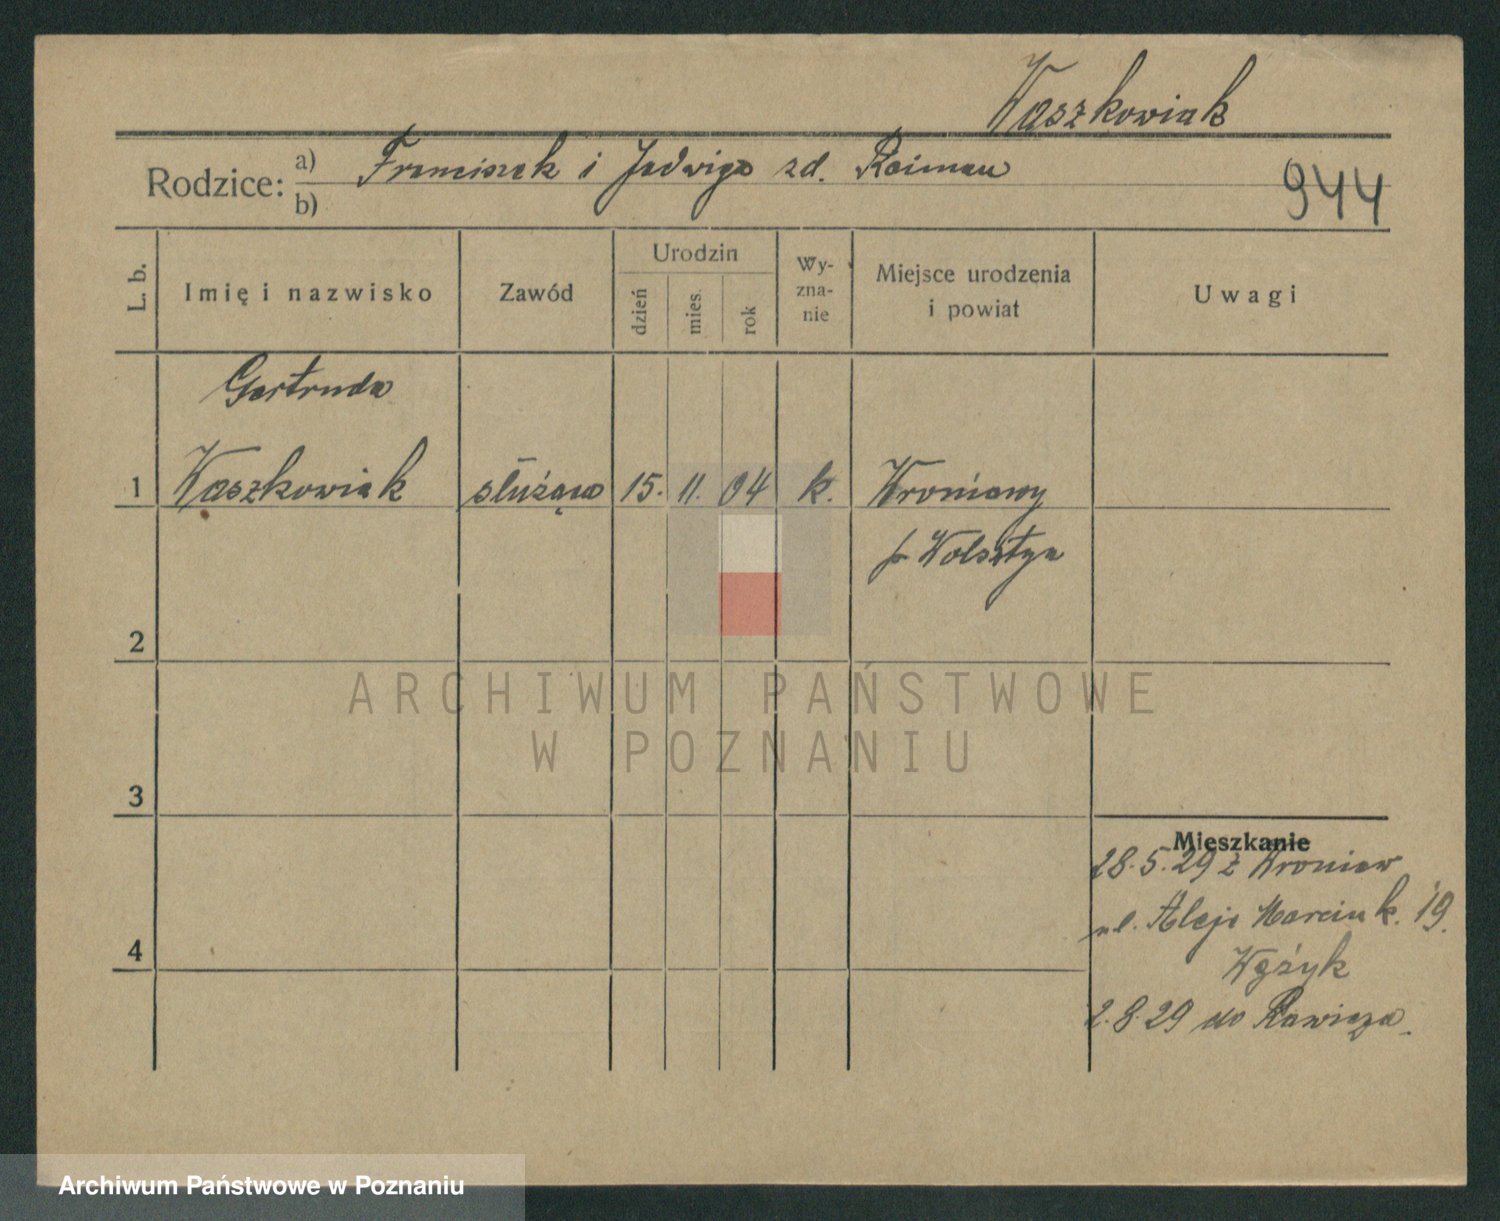 Waszkowiak
Rodzice: a) Franciszek i Jadwiga zd. Raiman
b)
944
L. b.
Imię i nazwisko
Zawód
Urodzin
dzień
mies.
rok
Wy-
zna-
nie
Miejsce urodzenia
i powiat
Uwagi
Gertruda
1 Waszkowiak służąca 15. 11. 04 k. Wroniawy
p. Wolsztyn
2
3
4
Mieszkanie
28.5.29 z Wroniaw
ul. Aleje Marcink. 19.
Wężyk
2.8.29 do Rawicza.
ARCHIWUM PAŃSTWOWE
W POZNANIU
Archiwum Państwowe w Poznaniu